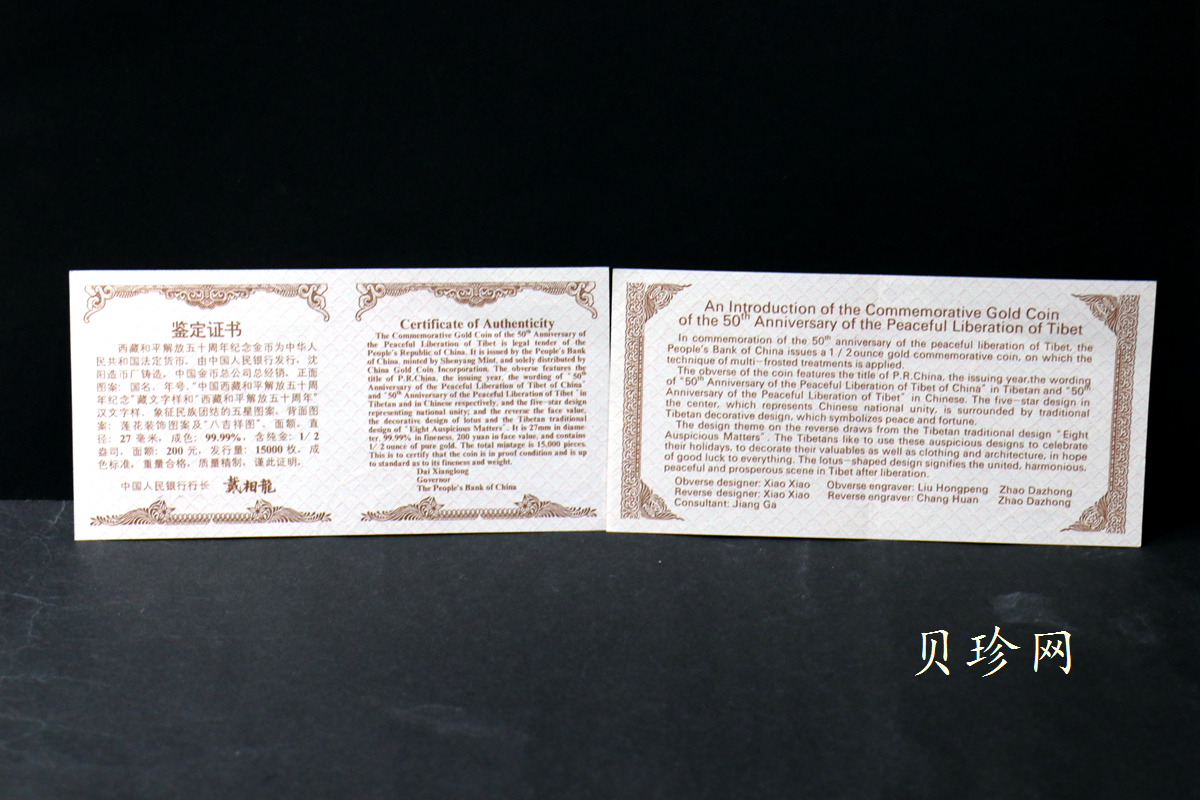 鉴定证书
西藏和平解放五十周年纪念金币为中华人
民共和国法定货币。由中国人民银行发行，沈
阳造币厂铸造，中国金币总公司总经销。正面
图案：国名、年号、“中国西藏和平解放五十周
年纪念”藏文字样和“西藏和平解放五十周年”
汉文字样、象征民族团结的五星图案。背面图
案：莲花装饰图案及“八吉祥图”、面额。直
径：27毫米，成色：99.99%，含纯金：1/2
盎司，面额：200元，发行量：15000枚。成
色标准，重量合格，质量精制，谨此证明。
中国人民银行行长 戴相龍
Certificate of Authenticity
The Commemorative Gold Coin of the 50th Anniversary of
the Peaceful Liberation of Tibet is legal tender of the
People's Republic of China. It is issued by the People's Bank
of China, minted by Shenyang Mint, and solely distributed by
China Gold Coin Incorporation. The obverse features the
title of P.R.China, the issuing year, the wording of "50th
Anniversary of the Peaceful Liberation of Tibet of China"
and "50th Anniversary of the Peaceful Liberation of Tibet" in
Tibetan and in Chinese respectively, and the five-star design
representing national unity; and the reverse the face value,
the decorative design of lotus and the Tibetan traditional
design of "Eight Auspicious Matters". It is 27mm in diame-
ter, 99.99% in fineness, 200 yuan in face value, and contains
1/2 ounce of pure gold. The total mintage is 15,000 pieces.
This is to certify that the coin is in proof condition and is up
to standard as to its fineness and weight.
Dai Xianglong
Governor
The People's Bank of China
An Introduction of the Commemorative Gold Coin
of the 50th Anniversary of the Peaceful Liberation of Tibet
In commemoration of the 50th anniversary of the peaceful liberation of Tibet, the
People's Bank of China issues a 1/2ounce gold commemorative coin, on which the
technique of multi-frosted treatments is applied.
The obverse of the coin features the title of P.R.China, the issuing year,the wording
of "50th Anniversary of the Peaceful Liberation of Tibet of China" in Tibetan and "50th
Anniversary of the Peaceful Liberation of Tibet" in Chinese. The five-star design in
the center, which represents Chinese national unity, is surrounded by traditional
Tibetan decorative design, which symbolizes peace and fortune.
The design theme on the reverse draws from the Tibetan traditional design "Eight
Auspicious Matters". The Tibetans like to use these auspicious designs to celebrate
their holidays, to decorate their valuables as well as clothing and architecture, in hope
of good luck to everything. The lotus-shaped design signifies the united, harmonious,
peaceful and prosperous scene in Tibet after liberation.
Obverse designer: Xiao Xiao Obverse engraver: Liu Hongpeng Zhao Dazhong
Reverse designer: Xiao Xiao Reverse engraver: Chang Huan Zhao Dazhong
Consultant: Jiang Ga
贝珍网